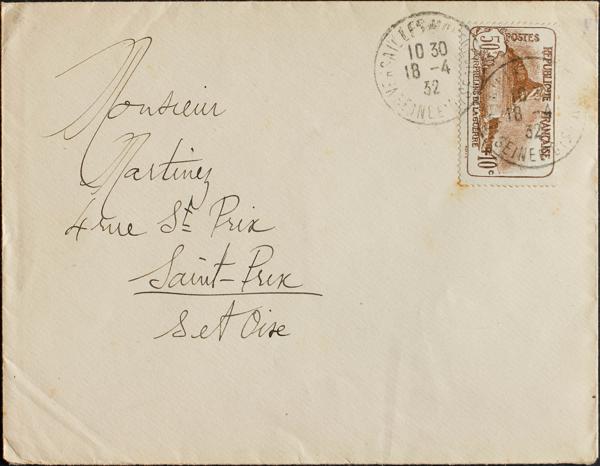 Monsieur
Martinez
4 rue St Prix
Saint-Prix
S et Oise
VERSAILLES
10 30
18 -4
32
SEINE
POSTES
RÉPUBLIQUE FRANÇAISE
50c
ORPHELINS DE LA GUERRE
+10c
18 -4
32
SEINE